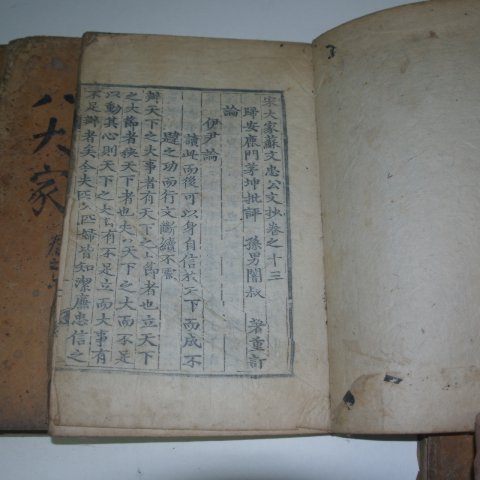 宋大家蘇文忠公文抄卷之十三
歸安鹿門茅坤批評 孫男闇叔 著重訂
論
伊尹論
讀此而後可以身自信於天下而成不
䟎之功而行文斷續不羈
辦天下之大事者有天下之大節者也立天下
之大節者狹天下者也夫以天下之大而不足
以動其心則天下之大節有不足立而大事有
不足辦者矣今夫匹夫匹婦皆知潔廉忠信之
八大家